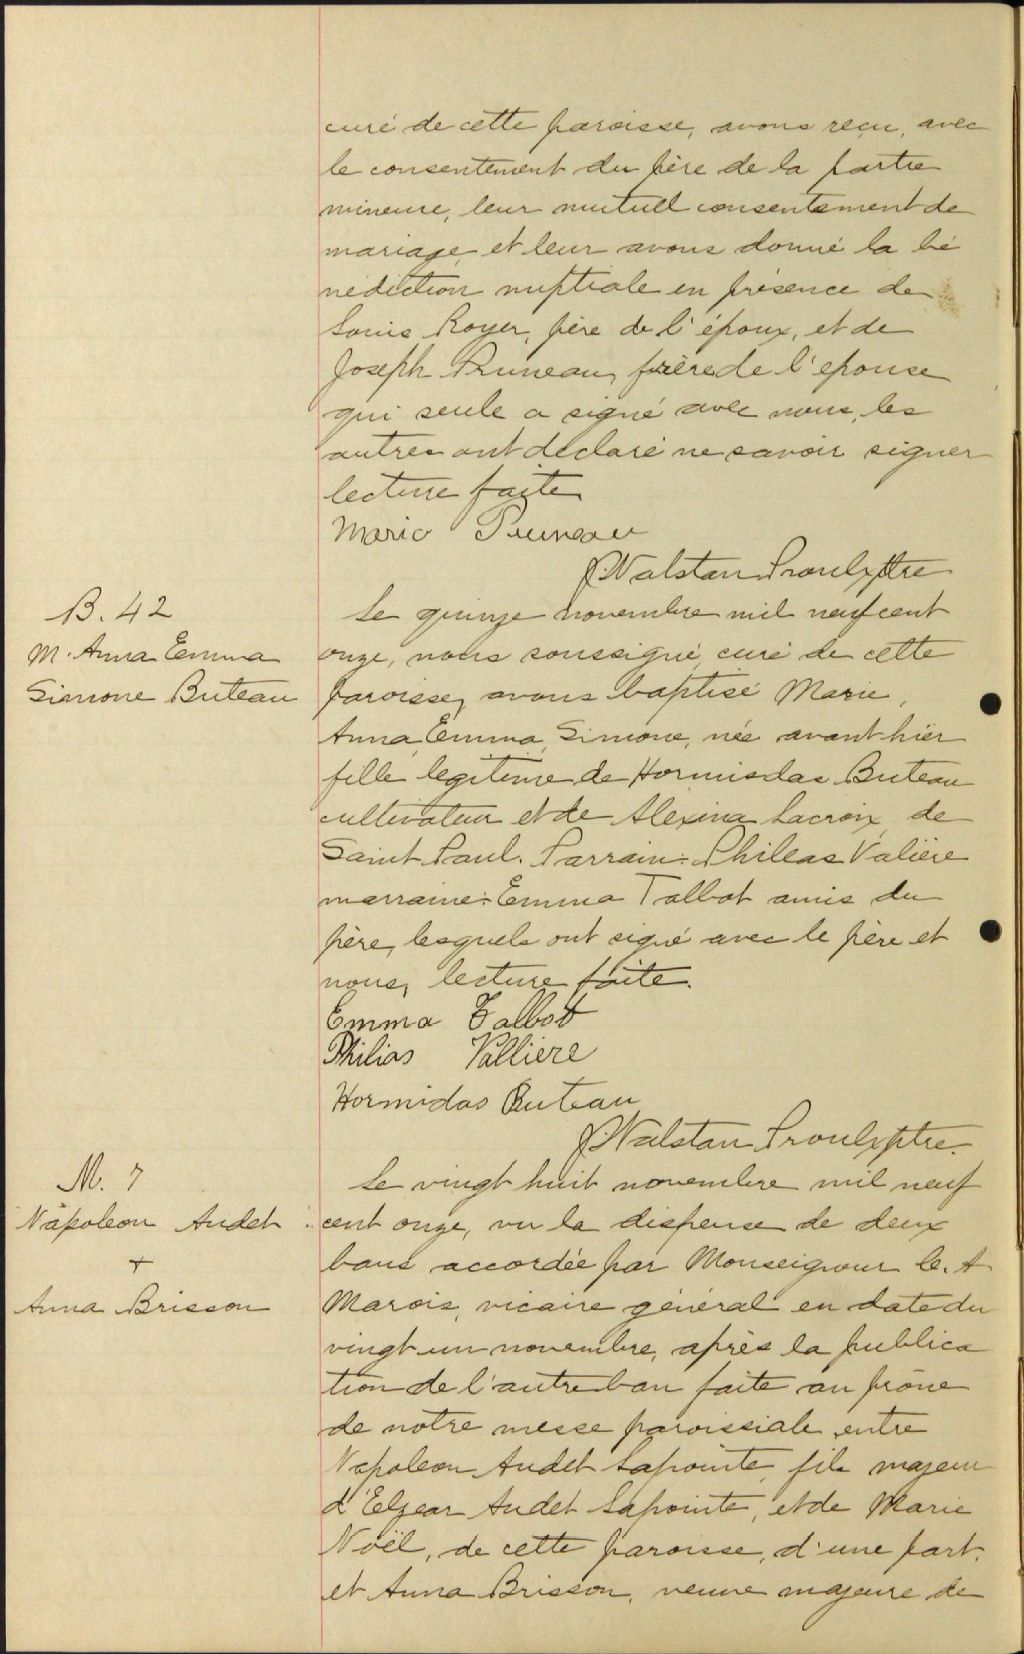 curé de cette paroisse, avons reçu, avec
le consentement du père de la partie
mineure, leur mutuel consentement de
mariage et leur avons donné la bé
nédiction nuptiale en présence de
Louis Royer, père de l'époux, et de
Joseph Pruneau, frère de l'epouse
qui seule a signé avec nous, les
autres ont déclaré ne savoir signer
lecture faite
Marie Pruneau
J. Walstan Proulx, ptre
B. 42
M. Anna Emma
Simone Buteau
Le quinze novembre mil neuf cent
onze, nous soussigné, curé de cette
paroisse, avons baptisé Marie,
Anna, Emma, Simone, née avant hier
fille legitime de Hormisdas Buteau
cultivateur et de Alexina Lacroix, de
Saint Paul. Parrain: Phileas Valière
marraine: Emma Talbot amis du
père, lesquels ont signé avec le père et
nous, lecture faite.
Emma Talbot
Philias Vallière
Hormidas Buteau
J. Walstan Proulx, ptre.
M. 7
Napoleon Audet
+
Anna Brisson
Le vingt huit novembre mil neuf
cent onze, vu la dispense de deux
bans accordée par Monseigneur C. A
Marois, vicaire général en date du
vingt un novembre, après la publica
tion de l'autre ban faite au prône
de notre messe paroissiale entre
Napoleon Audet Lapointe, fils majeur
d'Elzear Audet Lapointe, et de Marie
Noël, de cette paroisse, d'une part,
et Anna Brisson, veuve majeure de